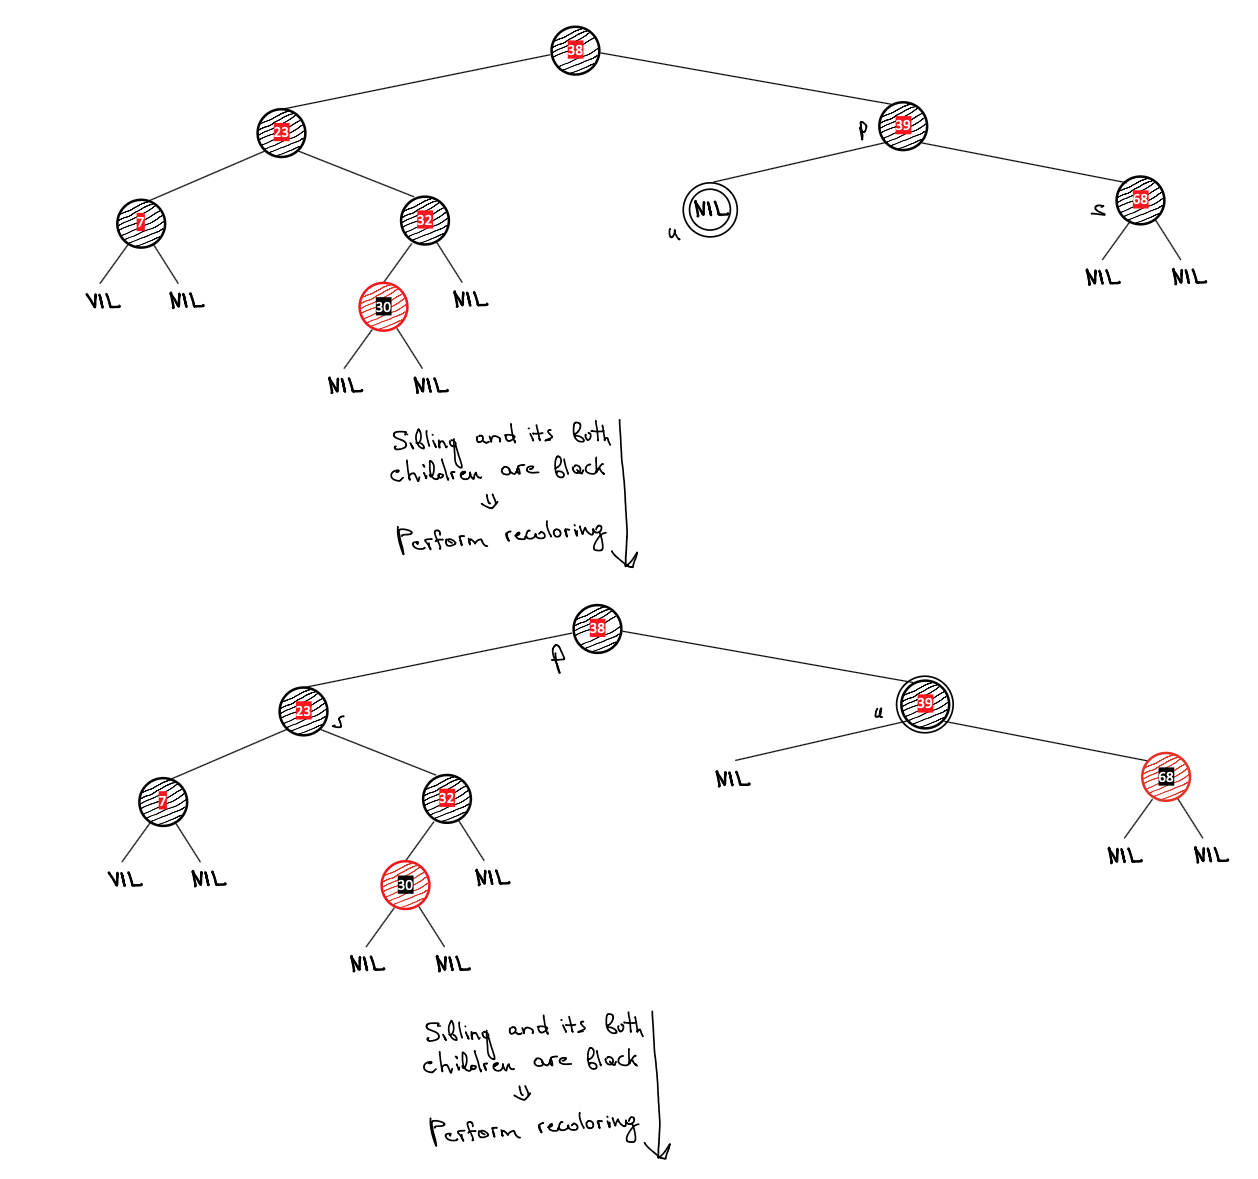 38
23
p 39
7
32
NIL
u
s 68
VIL NIL
30
NIL
NIL NIL
NIL NIL
Sibling and its both
children are black
⇓
Perform recoloring
38
p
23 s
u 39
7
32
NIL
68
VIL NIL
30
NIL
NIL NIL
NIL NIL
Sibling and its both
children are black
⇓
Perform recoloring